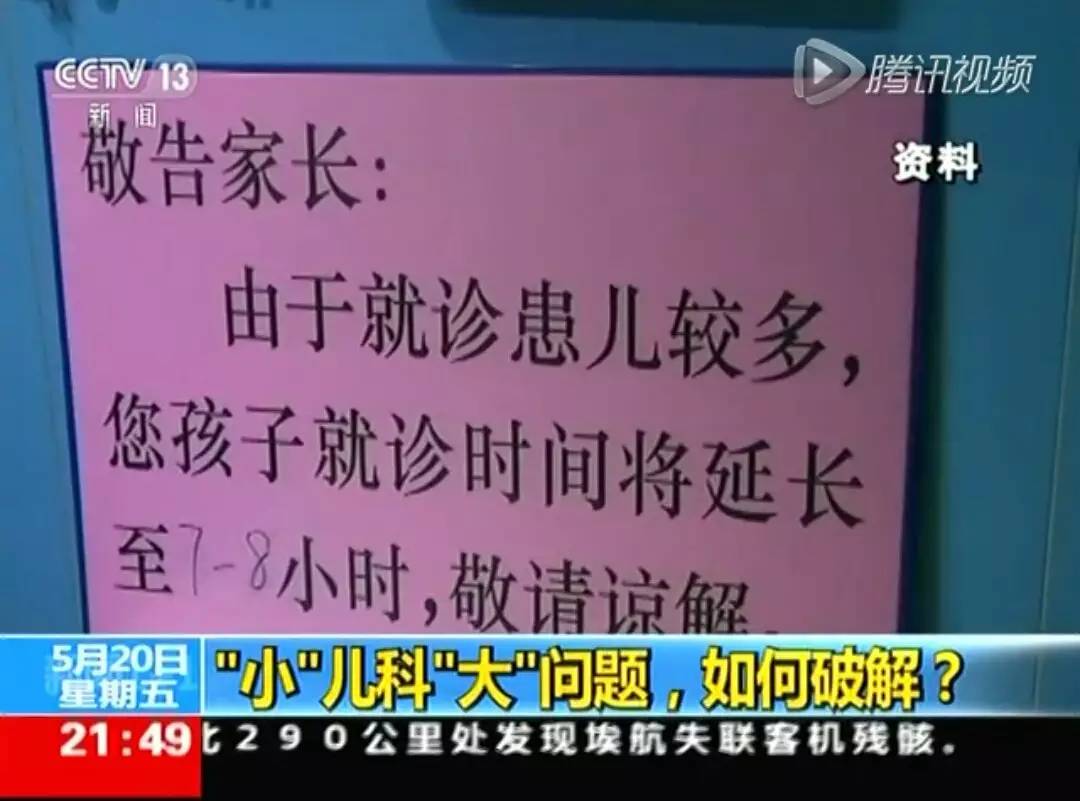 CCTV 13
新闻
腾讯视频
资料
敬告家长:
由于就诊患儿较多,
您孩子就诊时间将延长
至7-8小时,敬请谅解.
5月20日
星期五
"小"儿科"大"问题,如何破解?
21:49
北290公里处发现埃航失联客机残骸.